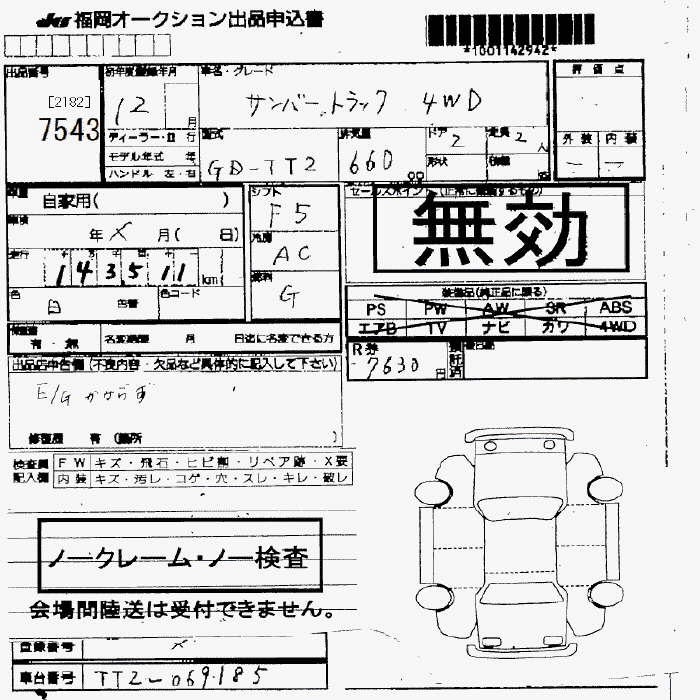 JU 福岡オークション出品申込書
*1001142942*
出品番号
[2182]
7543
初年度登録年月
12 月
車名・グレード
サンバートラック 4WD
評価点
外装 内装
ディーラー・ 行
モデル年式 年
ハンドル 左・右
型式
GD-TT2
排気量
660
cc
ドア
2
形状
定員
2 人
積載
自家用( )
車検
年 × 月( 日)
走行
143511 km
色
白
色替
色コード
シフト
F5
冷房
AC
燃料
G
セールスポイント(正常に機能するもの)
無効
装備品(純正品に限る)
PS PW AW SR ABS
エアB TV ナビ カワ 4WD
有・無
名変期限 月 日迄に名変できる方
R券
7630 円
出品店申告欄(不良内容・欠品など具体的に記入して下さい)
E/G かからず
修復歴 有(箇所 )
検査員 FW キズ・飛石・ヒビ割・リペア跡・X要
記入欄 内装 キズ・汚レ・コゲ・穴・スレ・キレ・破レ
ノークレーム・ノー検査
会場間陸送は受付できません。
登録番号 ×
車台番号 TT2-069185